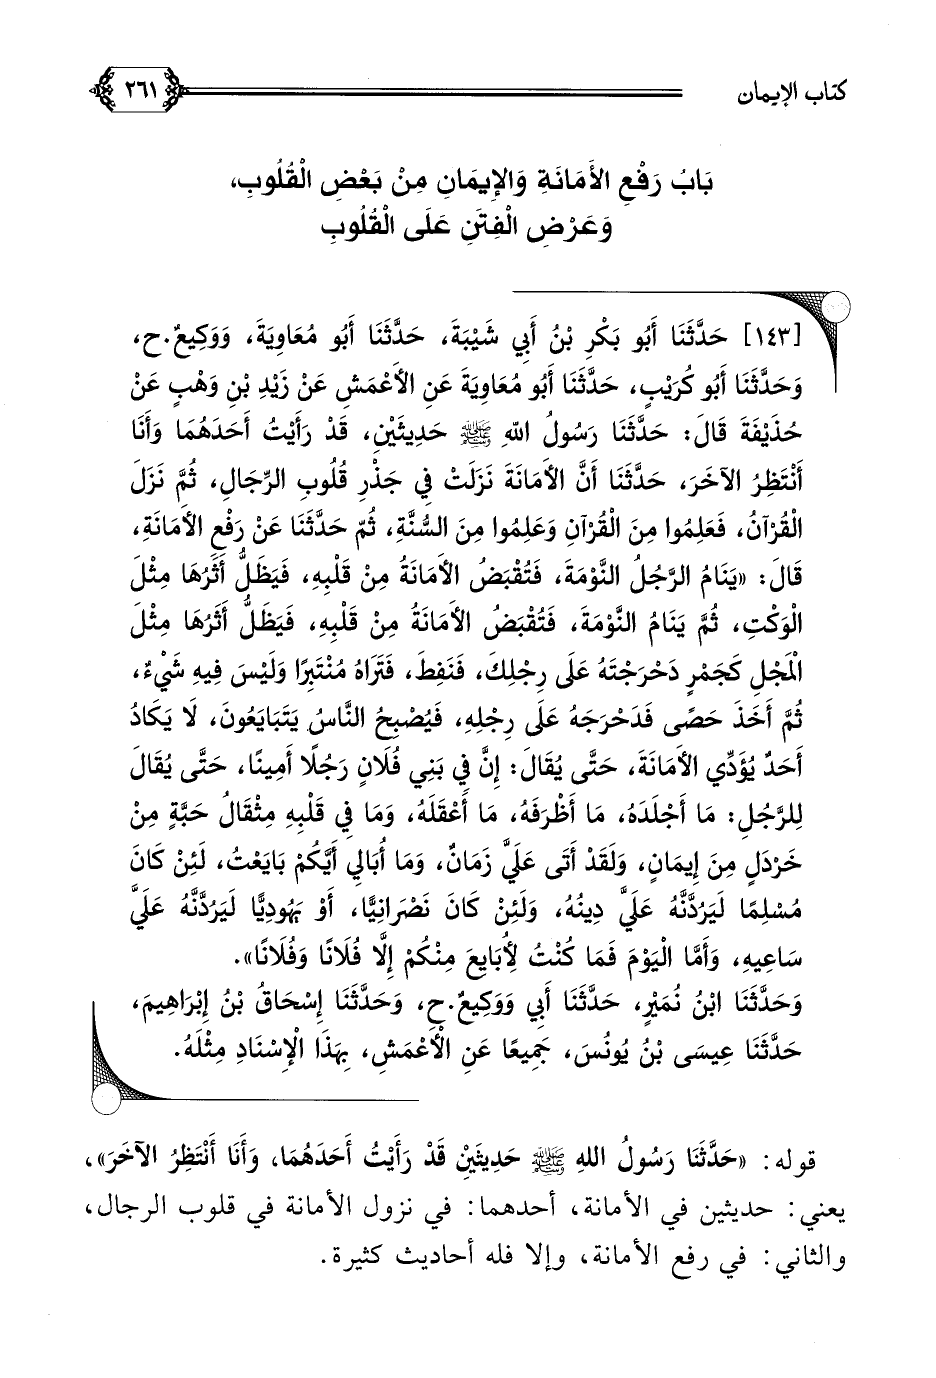 كتاب الإيمان
٢٦١
بَابُ رَفْعِ الأَمَانَةِ وَالإِيمَانِ مِنْ بَعْضِ الْقُلُوبِ،
وَعَرْضِ الْفِتَنِ عَلَى الْقُلُوبِ
[١٤٣] حَدَّثَنَا أَبُو بَكْرِ بْنُ أَبِي شَيْبَةَ، حَدَّثَنَا أَبُو مُعَاوِيَةَ، وَوَكِيعٌ.ح،
وَحَدَّثَنَا أَبُو كُرَيْبٍ، حَدَّثَنَا أَبُو مُعَاوِيَةَ عَنِ الأَعْمَشِ عَنْ زَيْدِ بْنِ وَهْبٍ عَنْ
حُذَيْفَةَ قَالَ: حَدَّثَنَا رَسُولُ اللهِ ﷺ حَدِيثَيْنِ، قَدْ رَأَيْتُ أَحَدَهُمَا وَأَنَا
أَنْتَظِرُ الآخَرَ، حَدَّثَنَا أَنَّ الأَمَانَةَ نَزَلَتْ فِي جَذْرِ قُلُوبِ الرِّجَالِ، ثُمَّ نَزَلَ
الْقُرْآنُ، فَعَلِمُوا مِنَ الْقُرْآنِ وَعَلِمُوا مِنَ السُّنَّةِ، ثُمّ حَدَّثَنَا عَنْ رَفْعِ الأَمَانَةِ،
قَالَ: «يَنَامُ الرَّجُلُ النَّوْمَةَ، فَتُقْبَضُ الأَمَانَةُ مِنْ قَلْبِهِ، فَيَظَلُّ أَثَرُهَا مِثْلَ
الْوَكْتِ، ثُمَّ يَنَامُ النَّوْمَةَ، فَتُقْبَضُ الأَمَانَةُ مِنْ قَلْبِهِ، فَيَظَلُّ أَثَرُهَا مِثْلَ
الْمَجْلِ كَجَمْرٍ دَحْرَجْتَهُ عَلَى رِجْلِكَ، فَنَفِطَ، فَتَرَاهُ مُنْتَبِرًا وَلَيْسَ فِيهِ شَيْءٌ،
ثُمَّ أَخَذَ حَصًى فَدَحْرَجَهُ عَلَى رِجْلِهِ، فَيُصْبِحُ النَّاسُ يَتَبَايَعُونَ، لَا يَكَادُ
أَحَدٌ يُؤَدِّي الأَمَانَةَ، حَتَّى يُقَالَ: إِنَّ فِي بَنِي فُلَانٍ رَجُلًا أَمِينًا، حَتَّى يُقَالَ
لِلرَّجُلِ: مَا أَجْلَدَهُ، مَا أَظْرَفَهُ، مَا أَعْقَلَهُ، وَمَا فِي قَلْبِهِ مِثْقَالُ حَبَّةٍ مِنْ
خَرْدَلٍ مِنَ إِيمَانٍ، وَلَقَدْ أَتَى عَلَيَّ زَمَانٌ، وَمَا أُبَالِي أَيَّكُمْ بَايَعْتُ، لَئِنْ كَانَ
مُسْلِمًا لَيَرُدَّنَّهُ عَلَيَّ دِينُهُ، وَلَئِنْ كَانَ نَصْرَانِيًّا، أَوْ يَهُودِيًّا لَيَرُدَّنَّهُ عَلَيَّ
سَاعِيهِ، وَأَمَّا الْيَوْمَ فَمَا كُنْتُ لِأُبَايِعَ مِنْكُمْ إِلَّا فُلَانًا وَفُلَانًا».
وَحَدَّثَنَا ابْنُ نُمَيْرٍ، حَدَّثَنَا أَبِي وَوَكِيعٌ.ح، وَحَدَّثَنَا إِسْحَاقُ بْنُ إِبْرَاهِيمَ،
حَدَّثَنَا عِيسَى بْنُ يُونُسَ، جَمِيعًا عَنِ الْأَعْمَشِ، بِهَذَا الْإِسْنَادِ مِثْلَهُ.
قوله: «حَدَّثَنَا رَسُولُ اللهِ ﷺ حَدِيثَيْنِ قَدْ رَأَيْتُ أَحَدَهُمَا، وَأَنَا أَنْتَظِرُ الآخَرَ»،
يعني: حديثين في الأمانة، أحدهما: في نزول الأمانة في قلوب الرجال،
والثاني: في رفع الأمانة، وإلا فله أحاديث كثيرة.